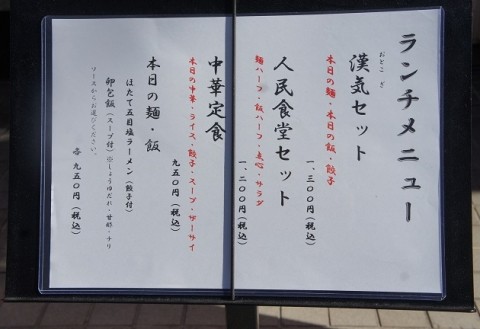 ランチメニュー
漢気セット
おとこぎ
本日の麺・本日の飯・餃子
一、三〇〇円(税込)
人民食堂セット
麺ハーフ・飯ハーフ・点心・サラダ
一、二〇〇円(税込)
中華定食
本日の中華・ライス・餃子・スープ・ザーサイ
九五〇円(税込)
本日の麺・飯
ほたて五目塩ラーメン(餃子付)
卵包飯(スープ付)※しょうゆだれ・甘酢・チリ
ソースからお選びください。
各 九五〇円(税込)